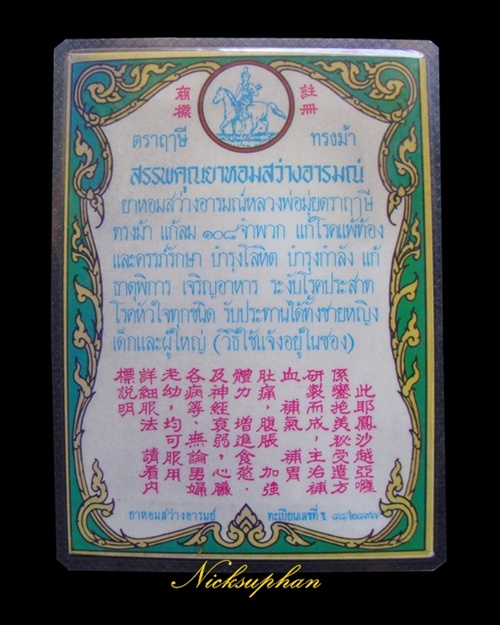 商標 註冊
ตราฤๅษี ทรงม้า
สรรพคุณยาหอมสว่างอารมณ์
ยาหอมสว่างอารมณ์หลวงพ่อมุ่ยตราฤๅษี
ทรงม้า แก้ลม ๑๐๘ จำพวก แก้โรคแพ้ท้อง
และครรภ์รักษา บำรุงโลหิต บำรุงกำลัง แก้
ธาตุพิการ เจริญอาหาร ระงับโรคประสาท
โรคหัวใจทุกชนิด รับประทานได้ทั้งชายหญิง
เด็กและผู้ใหญ่ (วิธีใช้แจ้งอยู่ในซอง)
此耶鳳沙越亞囉
係鑾抱美秘受遺方
研製而成，主治補
血 補氣 補胃
肚痛，腹脹 加強
體力 增進食慾．
及神經衰弱，心臟
各病等，無論男婦
老幼，均可服用
詳細服法 請看內
標說明
ยาหอมสว่างอารมย์ ทะเบียนเลขที่
Nicksuphan